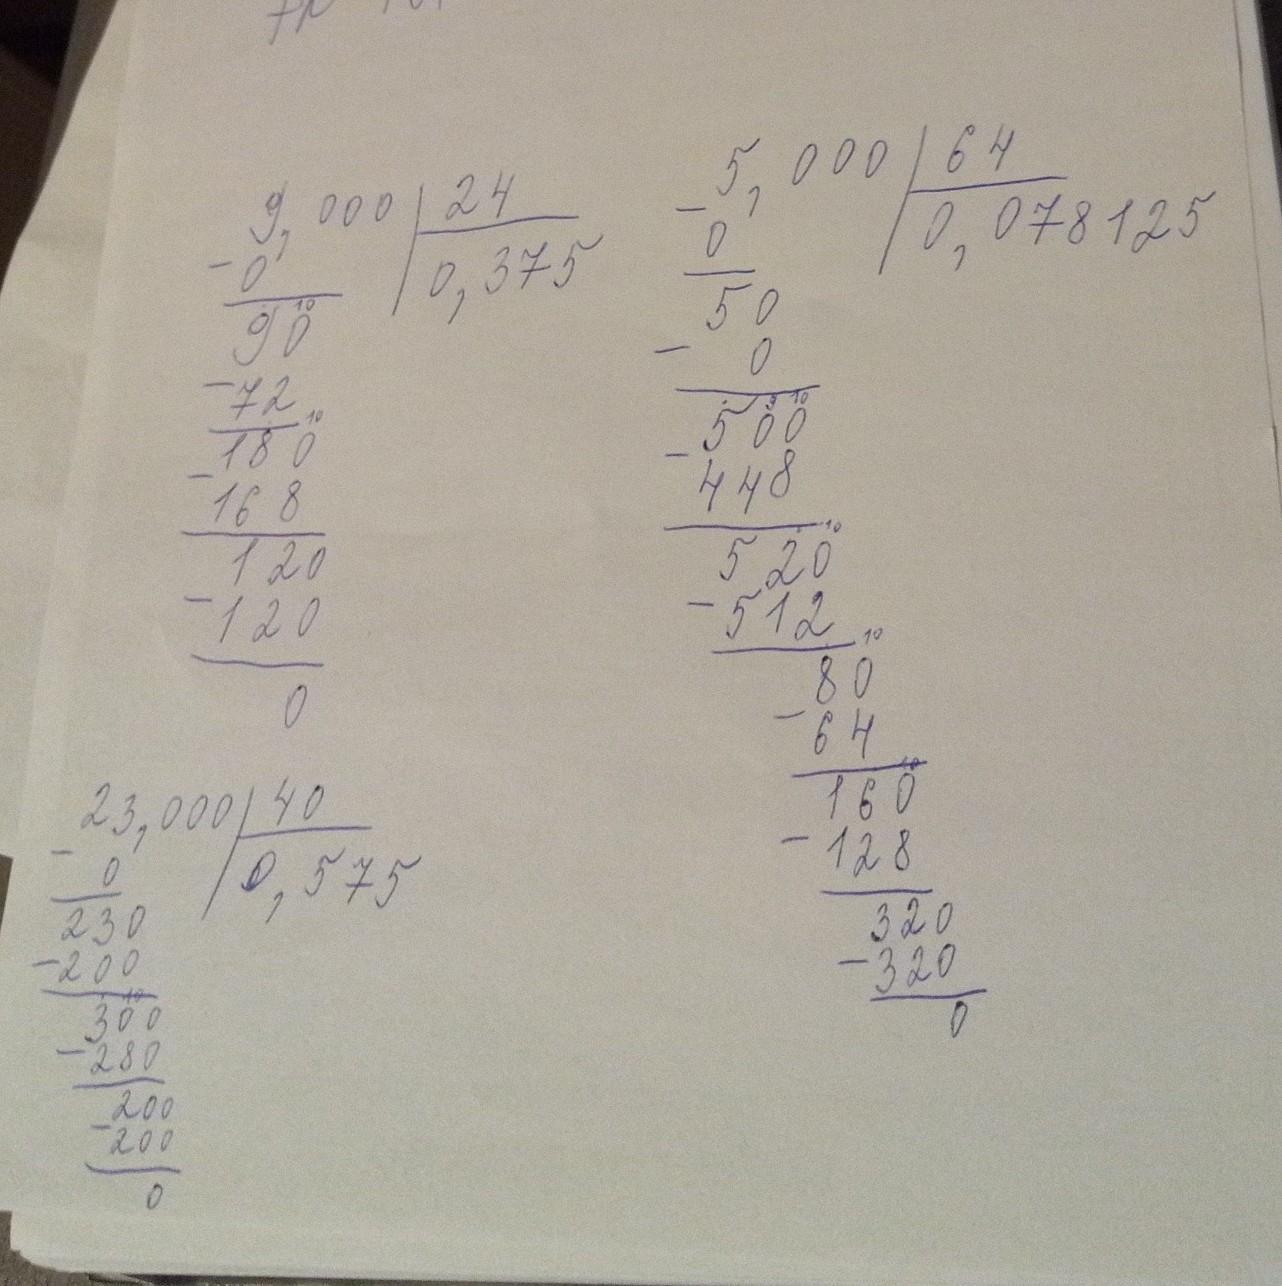 9,000 | 24
- 0
0,375
10
90
- 72
10
180
- 168
120
- 120
0
5,000 | 64
- 0
0,078125
50
- 0
9 10
500
- 448
10
520
- 512
10
80
- 64
10
160
- 128
320
- 320
0
23,000 | 40
- 0
0,575
230
- 200
10
300
- 280
200
- 200
0